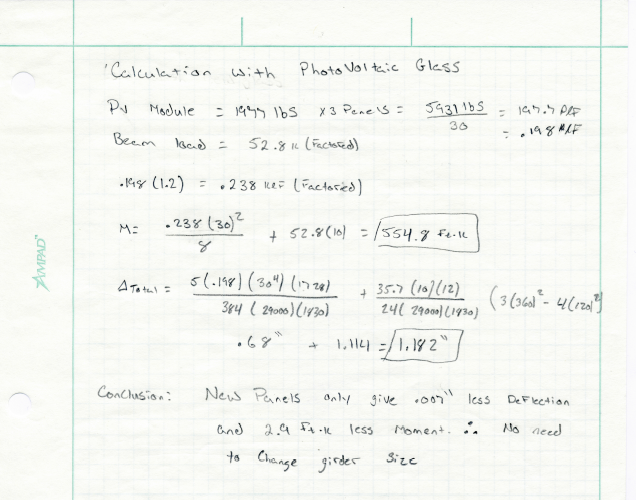 Calculation with PhotoVoltaic Glass
PV Module = 1977 lbs x3 Panels = 5931 lbs / 30 = 197.7 PLF
= .198 KLF
Beam load = 52.8 k (Factored)
.198 (1.2) = .238 KLF (Factored)
M = .238 (30)² / 8 + 52.8 (10) = 554.8 Ft-k
Δ Total = 5(.198)(30⁴)(1728) / 384 (29000)(1830) + 35.7 (10)(12) / 24 (29000)(1830) (3(360)² - 4(120)²)
.68" + 1.114 = 1.182"
Conclusion: New Panels only give .007" less Deflection
and 2.9 Ft-k less Moment. ∴ No need
to Change girder Size
AMPAD™